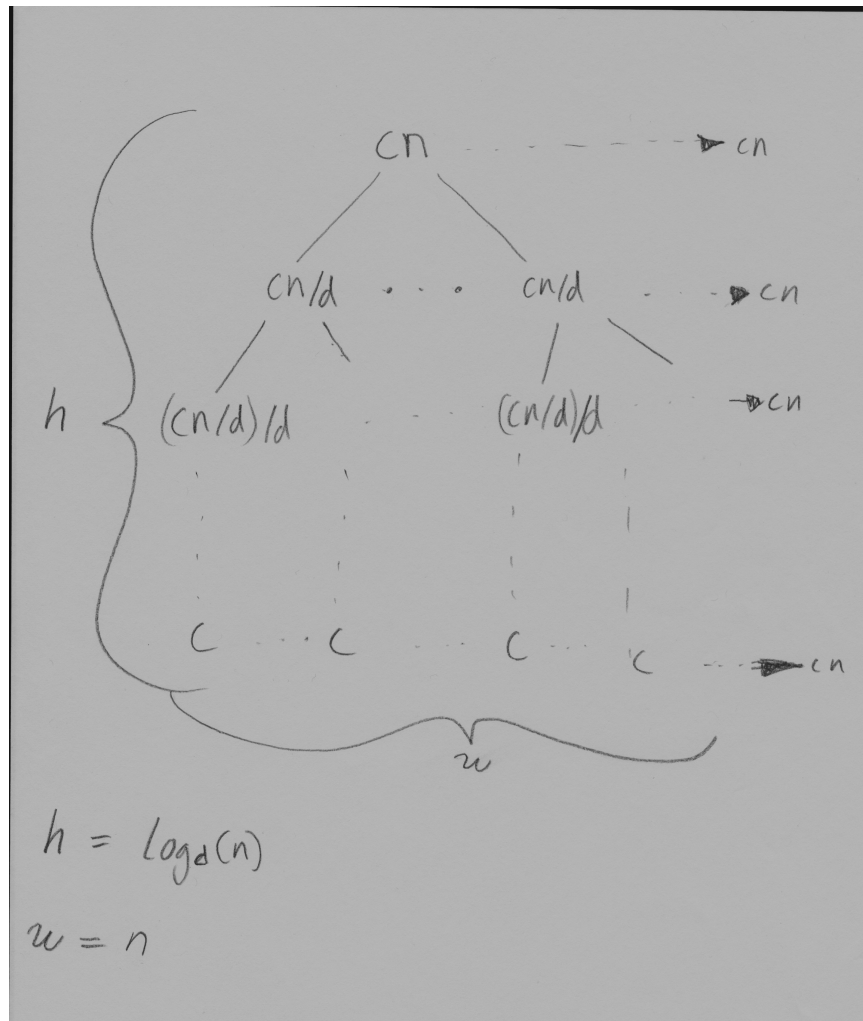 cn cn
cn/d cn/d cn
(cn/d)/d (cn/d)/d cn
h
c c c c cn
w
h = log_d(n)
w = n